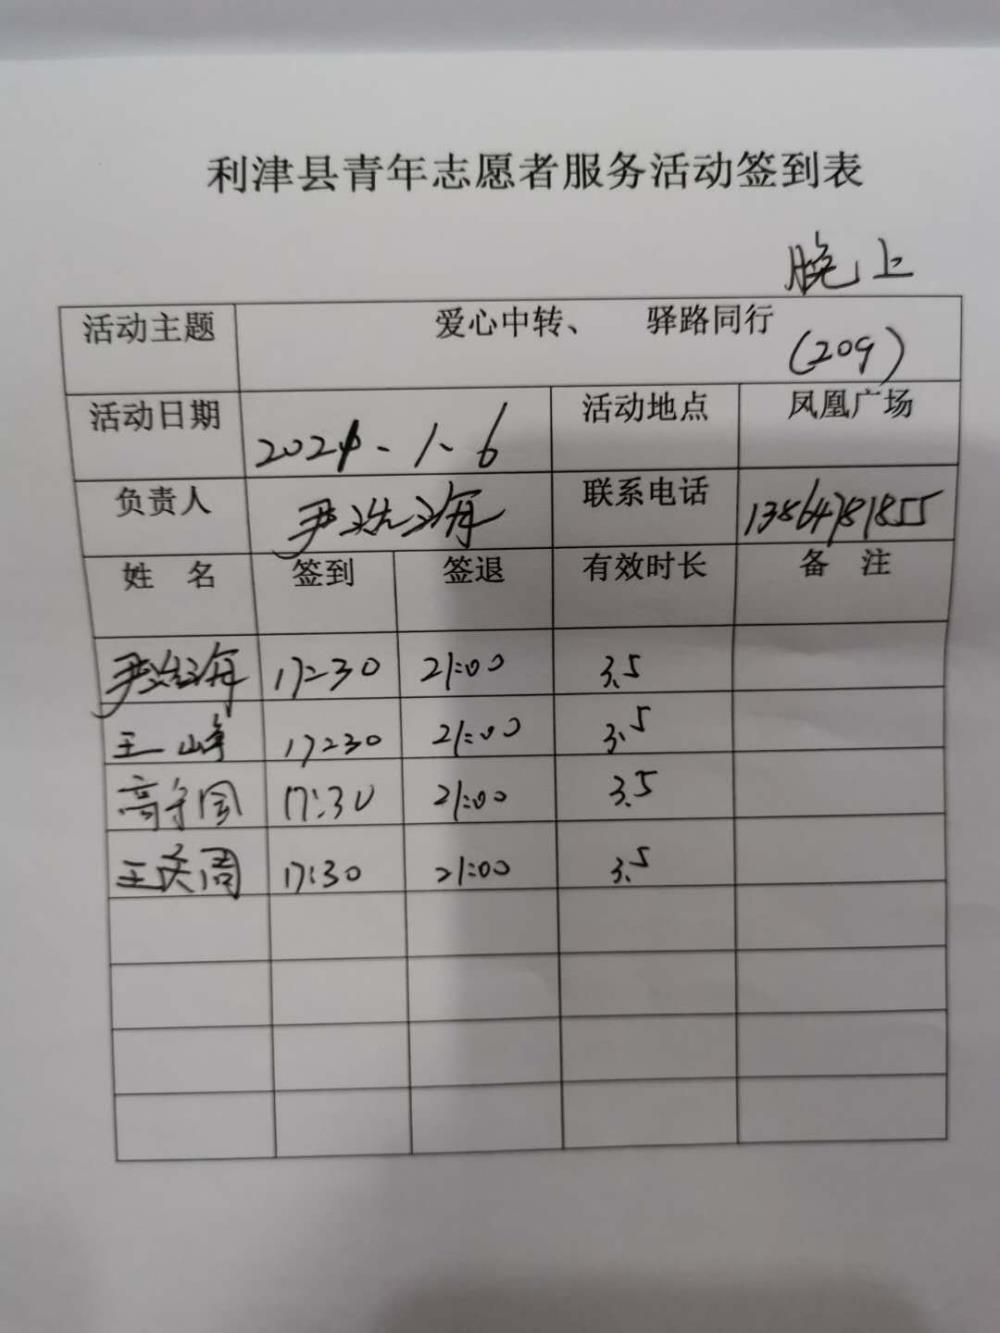 利津县青年志愿者服务活动签到表
晚上
活动主题 爱心中转、 驿路同行 (209)
活动日期 2021、1、6 活动地点 凤凰广场
负责人 尹治海 联系电话 13864781855
姓 名 签到 签退 有效时长 备 注
尹治海 17:30 21:00 3.5
王峰 17:30 21:00 3.5
高守国 17:30 21:00 3.5
王庆周 17:30 21:00 3.5